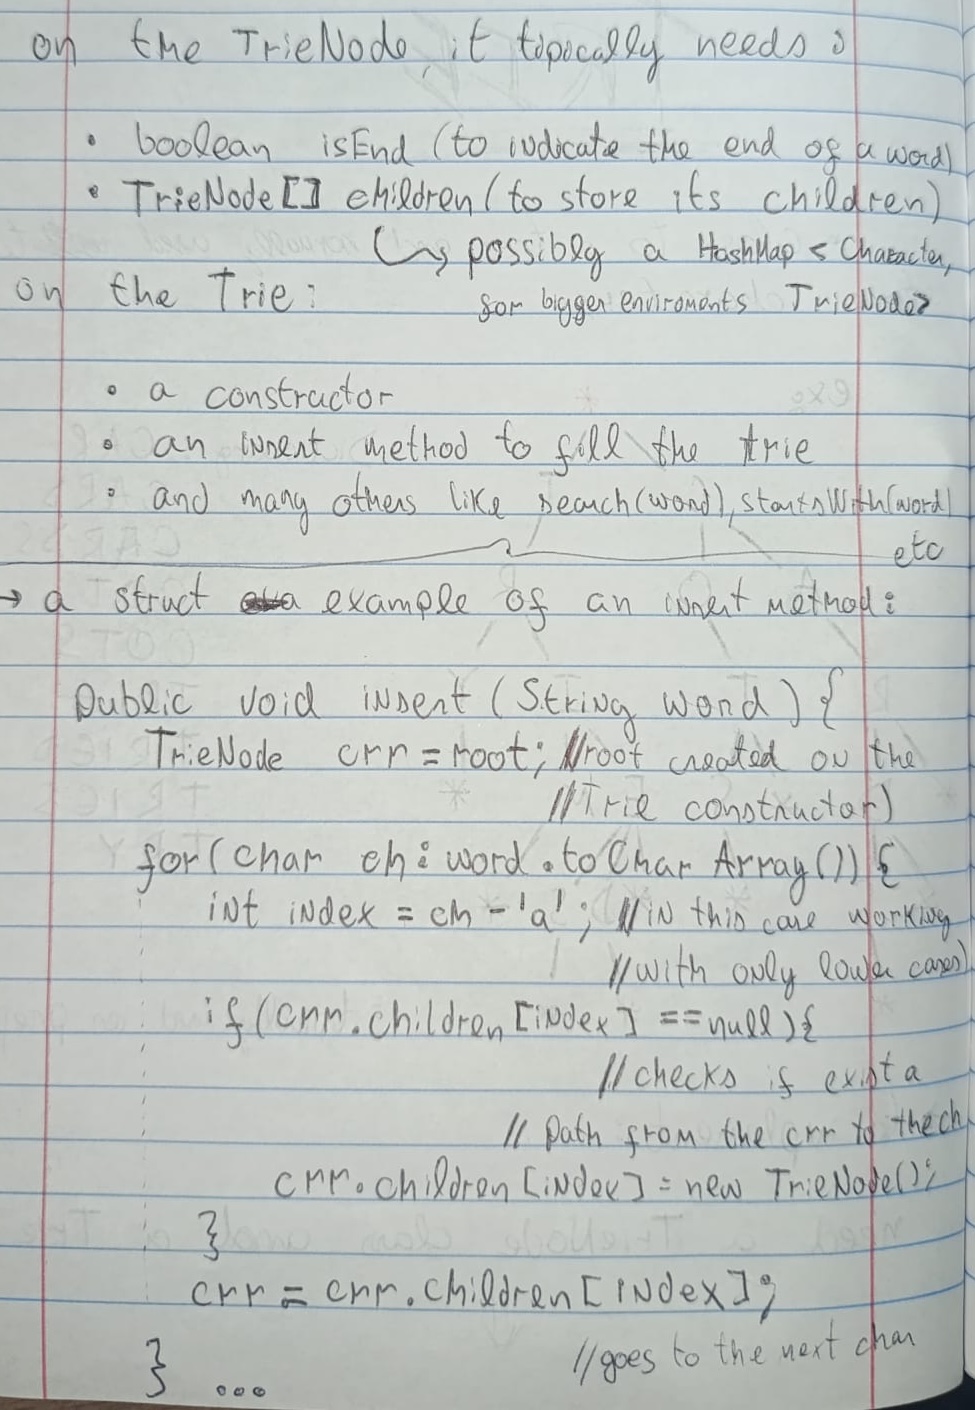 on the TrieNode, it typically needs:
• boolean isEnd (to indicate the end of a word)
• TrieNode[] children (to store its children)
↳ possibly a HashMap < Character,
on the Trie: for bigger enviroments TrieNode>
• a constructor
• an insert method to fill the trie
• and many others like search(word), startsWith(word)
etc
→ a struct example of an insert method:
public void insert (String word) {
TrieNode crr = root; //root created on the
//Trie constructor)
for(char ch: word.toCharArray()) {
int index = ch - 'a'; //in this case working
//with only lower cases)
if(crr.children[index] == null){
//checks if exist a
// path from the crr to the ch
crr.children[index] = new TrieNode();
}
crr = crr.children[index];
//goes to the next char
} ...